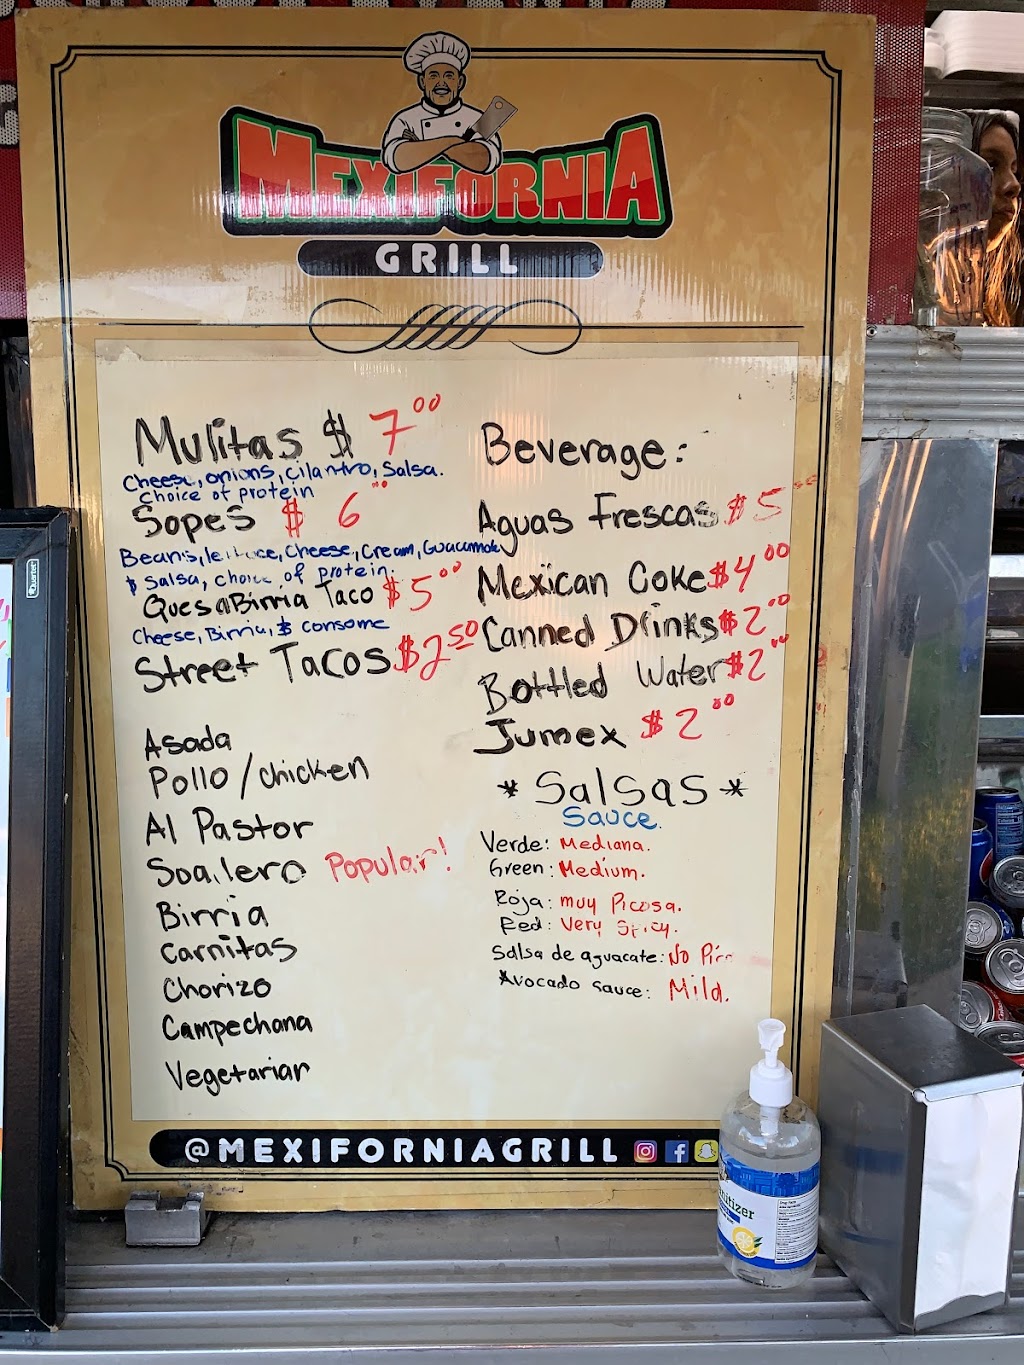 MEXIFORNIA
GRILL
Mulitas $ 7.00
Cheese, onions, cilantro, Salsa.
Choice of protein
Sopes $ 6
Beans, lettuce, cheese, Cream, Guacamole
$ Salsa, choice of protein.
QuesaBirria Taco $5.00
Cheese, Birria, $ consome
Street Tacos $2.50
Asada
Pollo/chicken
Al Pastor
Soa,lero Popular!
Birria
Carnitas
Chorizo
Campechana
Vegetarian
Beverage:
Aguas Frescas $5
Mexican Coke $4.00
Canned Drinks $2.00
Bottled Water $2
Jumex $2.00
* Salsas *
Sauce.
Verde: Mediana.
Green: Medium.
Roja: muy Picosa.
Red: Very Spicy.
Salsa de aguacate: No
Avocado sauce: Mild.
@MEXIFORNIAGRILL
Quartet